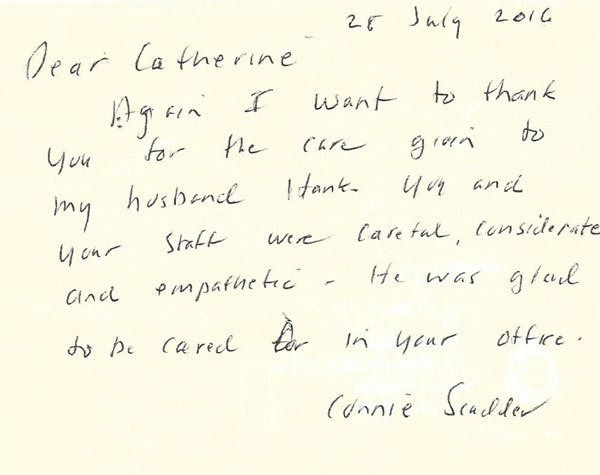 28 July 2016
Dear Catherine
Again I want to thank
you for the care given to
my husband Hank. You and
your staff were careful, considerate
and empathetic - He was glad
to be cared for in your office.
Connie Scudder